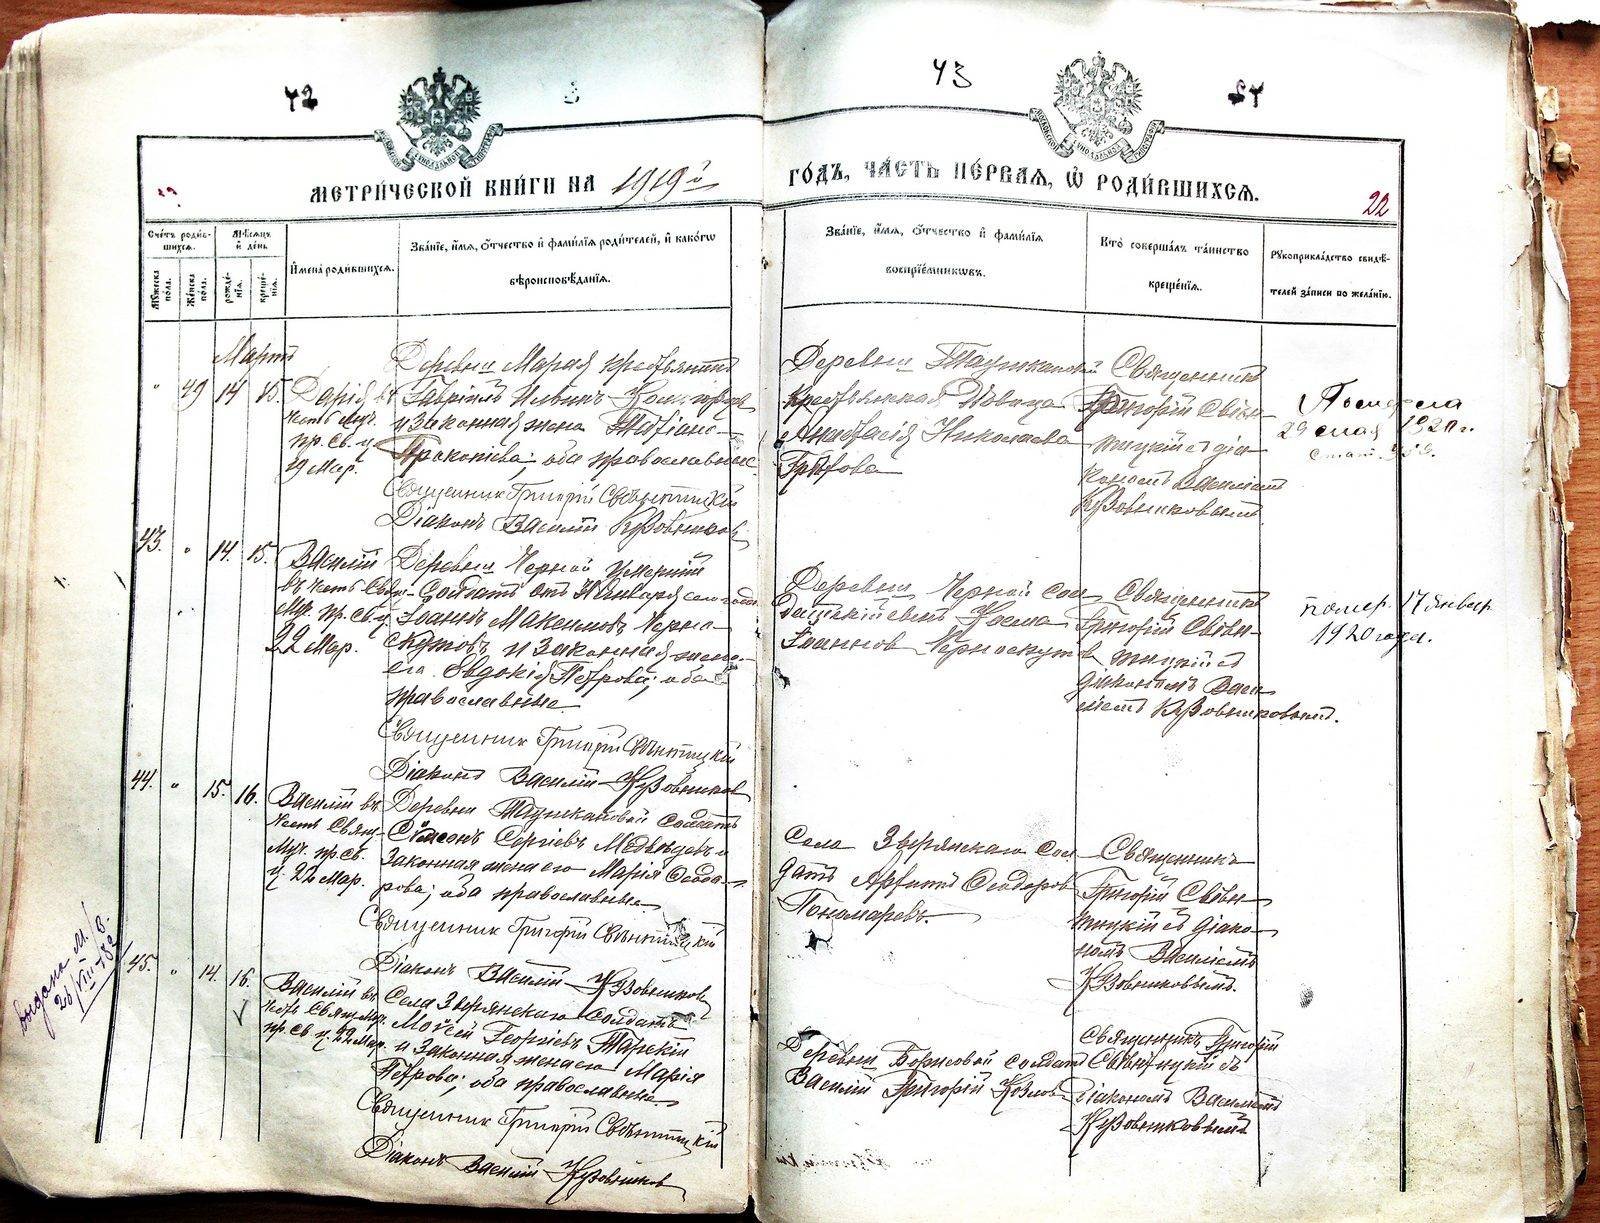 42
43
МЕТРИ́ЧЕСКОЙ КНИ́ГИ НА 1919й
ГО́ДЪ, ЧА́СТЬ ПЕ́РВАЯ, Ѡ РОДИ́ВШИХСЯ.
22
Сче́тъ роди́в-
шихся.
Мѣ́сяцъ
и҆ де́нь
Мꙋ́жеска по́ла.
Же́нска по́ла.
рожде́-
нїя.
креще́-
нїя.
И҆мена̀ роди́вшихся.
Зва́нїе, и҆́мя, ѻ҆́тчество и҆ фами́лїя роди́телей, и҆ како́гѡ
вѣроисповѣ́данїя.
Зва́нїе, и҆́мя, ѻ҆́тчество и҆ фами́лїя
воспрїе́мникѡвъ.
Кто̀ соверша́лъ та́инство
креще́нїя.
Рꙋкоприкла́дство свидѣ́-
телей за́писи по жела́нїю.
Мартъ
" 49 14 15.
Дарія въ
честь муч.
пр. св. ц.
19 Мар.
Деревни крестьянинъ
Гавріилъ Ильинъ
и законная жена Татіана
Прокопіева; оба православные.
Священник Григорій Свѣнтицкій
Діаконъ Василій Кузовников
Деревни Таушкановой
крестьянская дѣвица
Анастасія Николаева
Священникъ
Григорій Свѣн-
тицкій съ діа-
кономъ Василіемъ
Кузовниковымъ.
Померла
29 мая 1920 г.
43. " 14. 15.
Василій
въ честь Свящ-
Муч. пр. св. ц.
22 Мар.
Деревни Черной умершій
Солдатъ отъ Января сего года
Іоаннъ Максимовъ Черно-
скутовъ и законная жена
его Евдокія Петрова; оба
православные
Священник Григорій Свѣнтицкій
Діаконъ Василій Кузовников
Деревни Черной сол-
датскій сынъ Косма
Іоаннов Черноскутов
Священникъ
Григорій Свѣн-
тицкій съ
діакономъ Васи-
ліемъ Кузовниковымъ.
помер. 17 январ.
1920 года.
44. " 15. 16.
Василій въ
честь Свящ-
Муч. пр. св.
ц. 22 Мар.
Деревни Таушкановой солдатъ
Симеонъ Сергіевъ Медвѣдевъ и
законная жена его Марія Ѳеодо-
рова; оба православные
Священник Григорій Свѣнтицкій
Діаконъ Василій Кузовников
Села Зырянскаго сол-
датъ Ѳеодоров
Пономаревъ.
Священникъ
Григорій Свѣн-
тицкій съ діако-
номъ Василіемъ
Кузовниковымъ.
45. " 14. 16.
Василій въ
честь Свящ. Муч.
пр. св. ц. 22 Мар.
Села Зырянскаго солдатъ
Мойсей Георгіевъ Тарскій
и законная жена его Марія
Петрова; оба православные.
Священник Григорій Свѣнтицкій
Діаконъ Василій Кузовников
Деревни Борисовой солдатъ
Василій Григорій Козлов
Священникъ Григорій
Свѣнтицкій съ
Діакономъ Василіемъ
Кузовниковымъ
выдана